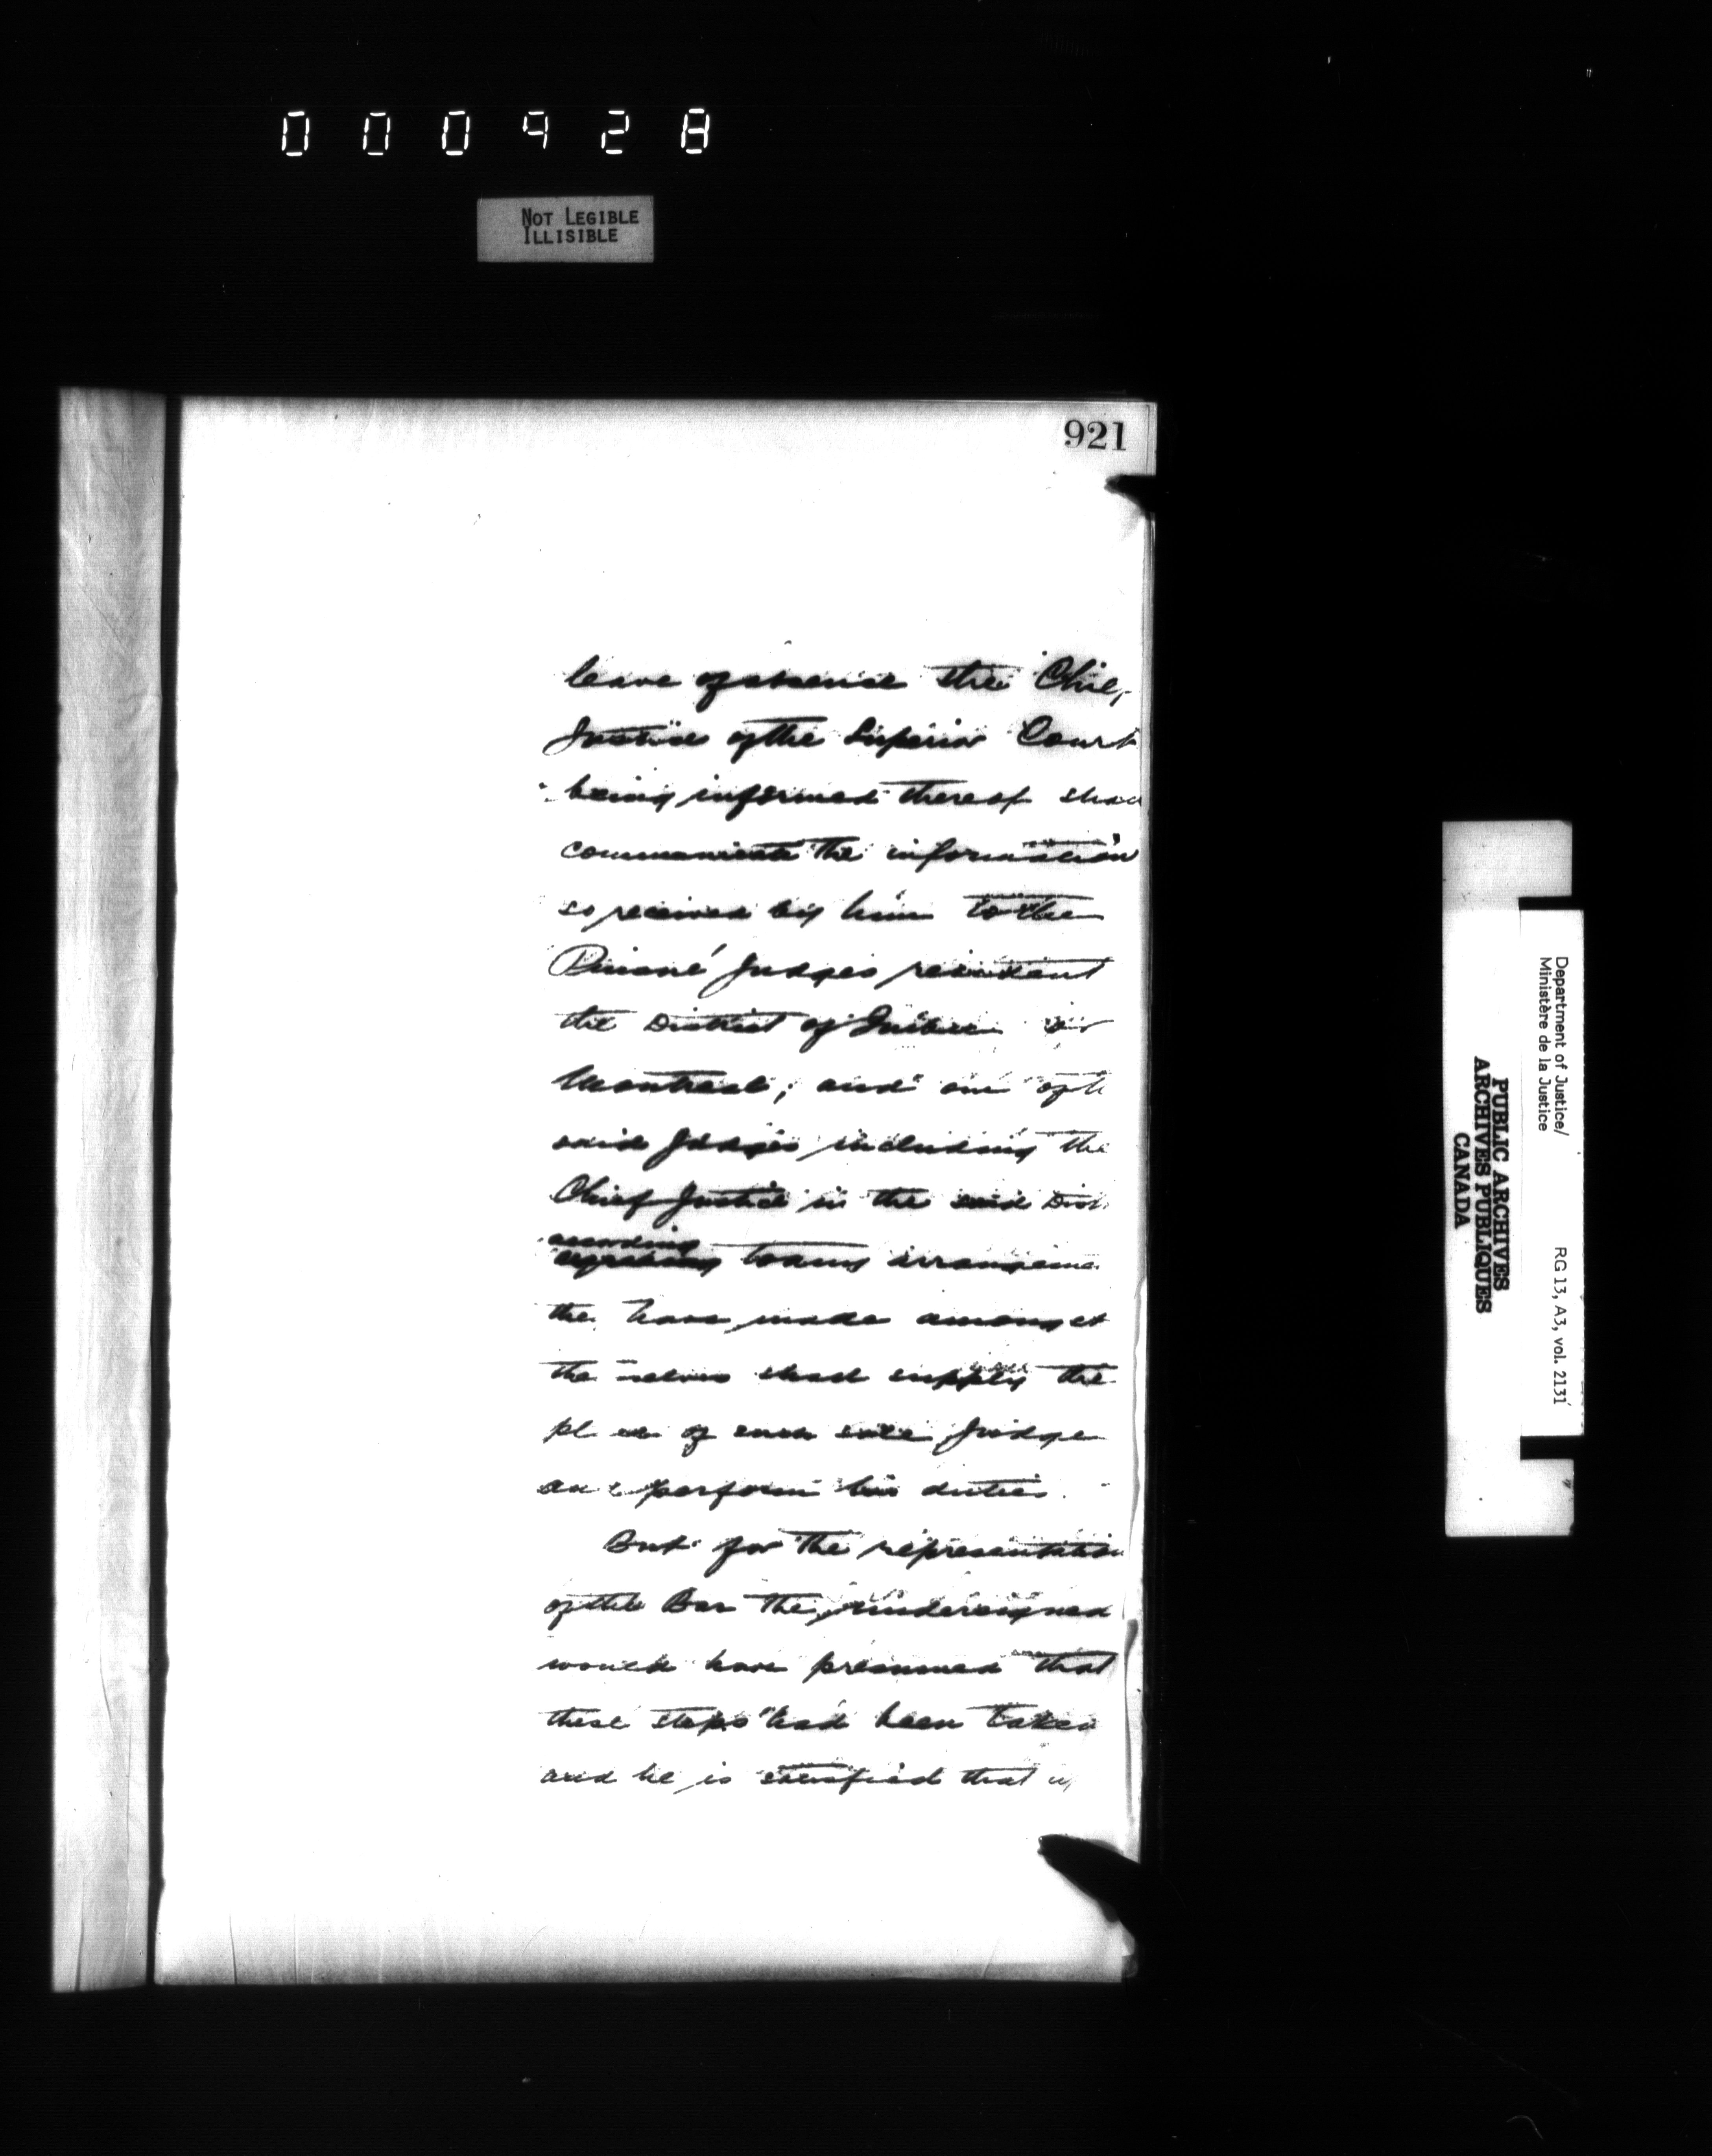 000928
NOT LEGIBLE
ILLISIBLE
921
leave of absence the Chief
Justice of the Superior Court
being informed thereof shall
communicate the information
so received by him to the
Puisné Judges resident
the District of Quebec or
Montreal; and one of th
said Judges including the
Chief Justice in the said Dist
according
to any arrangeme
the have made amongst
the selves shall supply the
place of such Judge
and perform his duties.
But for the representation
of the Bar the undersigned
would have presumed that
these steps had been taken
and he is satisfied that
Department of Justice/
Ministère de la Justice
RG 13, A3, vol. 2131
PUBLIC ARCHIVES
ARCHIVES PUBLIQUES
CANADA